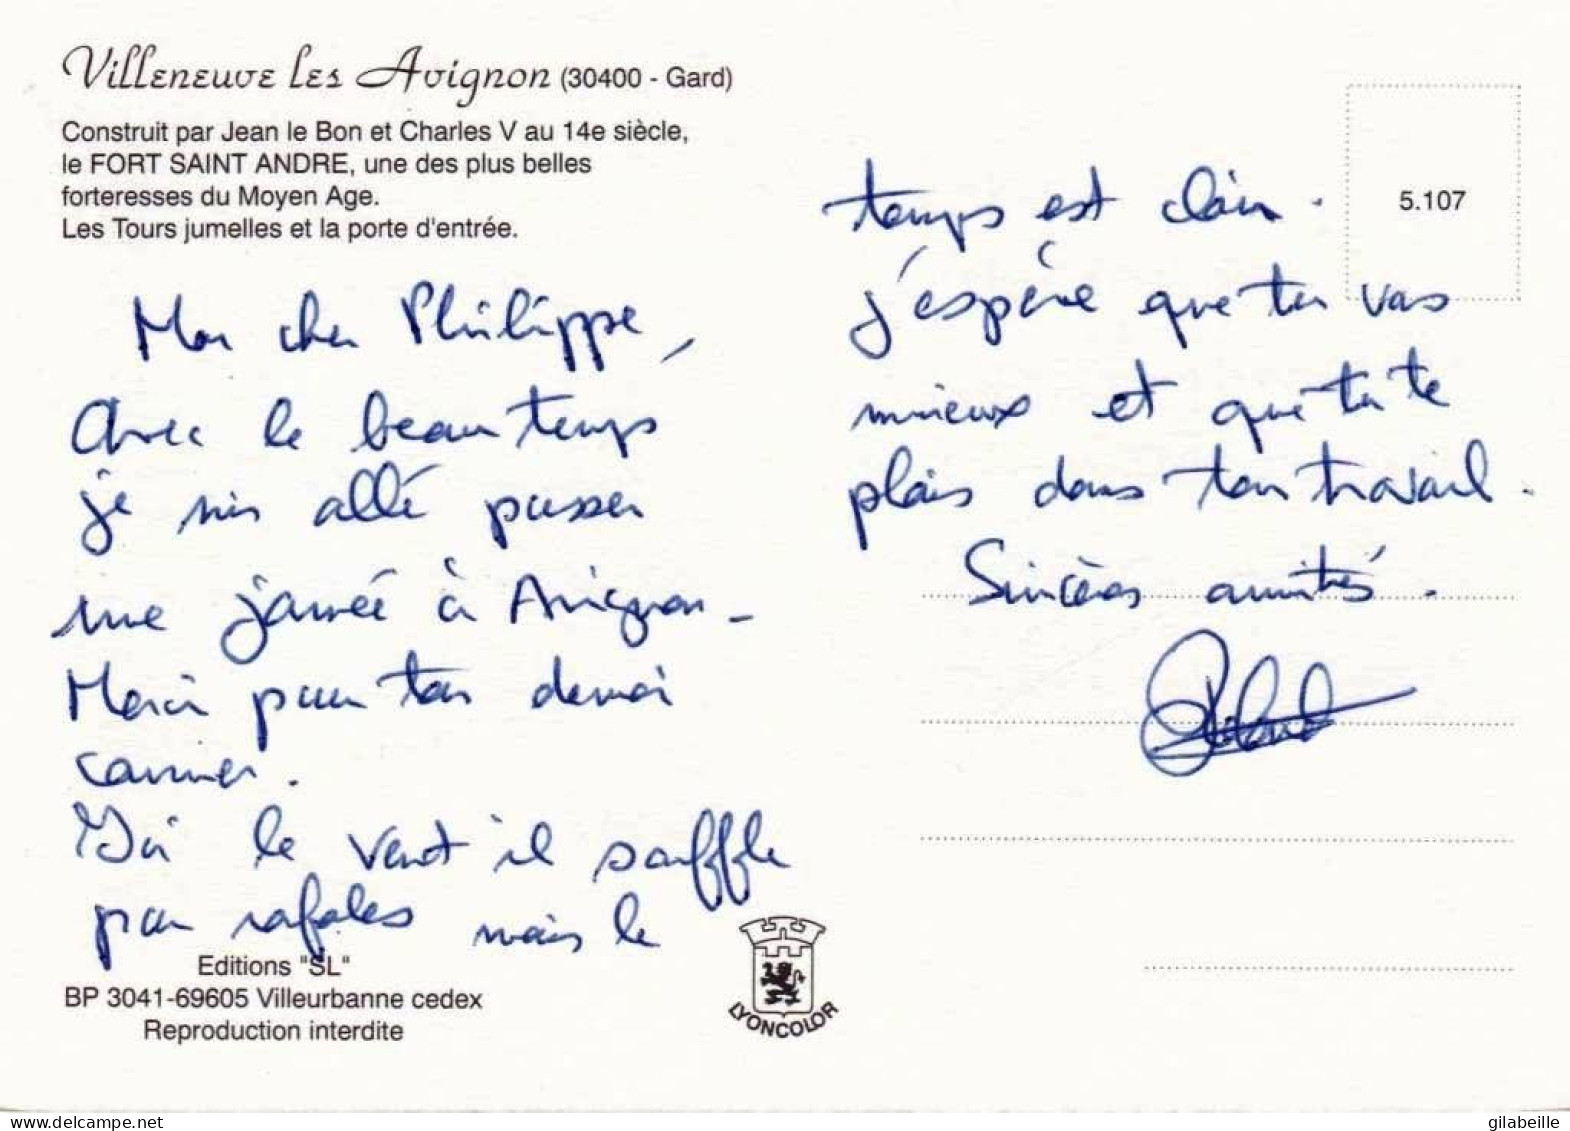 Villeneuve les Avignon (30400 - Gard)
Construit par Jean le Bon et Charles V au 14e siècle,
le FORT SAINT ANDRE, une des plus belles
forteresses du Moyen Age.
Les Tours jumelles et la porte d'entrée.
Mon cher Philippe,
Avec le beau temps
je suis allé passer
une journée à Avignon -
Merci pour ton dernier
courrier.
Ici le vent il souffle
par rafales mais le
Editions "SL"
BP 3041-69605 Villeurbanne cedex
Reproduction interdite
LYONCOLOR
5.107
temps est clair.
j'espère que tu vas
mieux et que tu te
plais dans ton travail.
Sincères amitiés.
gilabeille